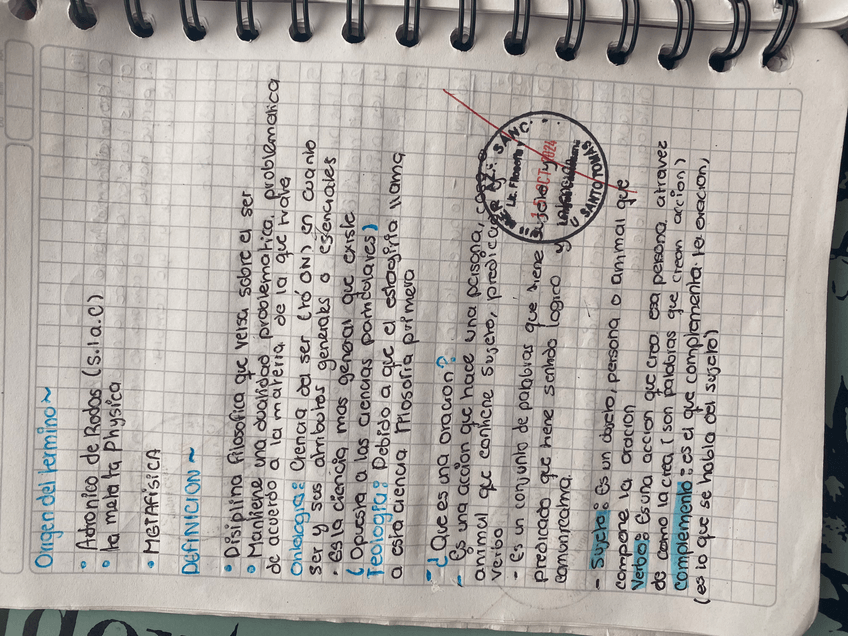 Origen del termino~
• Adronico de Rodas (S.I a.C)
• ta meta ta Physica
• METAFISICA
DEFINICION ~
• Disiplina filosofica que versa sobre el ser
• Mantiene una dualidad problematica, problematica
de acuerdo a la materia de la que trate
Ontologia: Ciencia del ser (tó ON) en cuanto
ser y sus atributos generales o esenciales
• Es la ciencia mas general que existe
( Opuesta a las ciencias particulares)
Teologia: Debido a que el estagirita llama
a esta ciencia Filosofia primera
- ¿Que es una oracion?
- Es una acción que hace una persona, cosa o
animal que contiene sujeto, predicado y
verbo
- Es un conjunto de palabras que tiene sujeto y
predicado que tiene sentido logico y
comunica
- Sujeto: Es un objeto, persona o animal que
compone la oración
Verbo: Es una accion que crea esa persona atravez
de como la crea (son palabras que crean accion)
Complemento: es el que complementa la oracion,
(es lo que se habla del sujeto)
Lic. Filosofia
15 OCT 2024
SANTO TOMAS